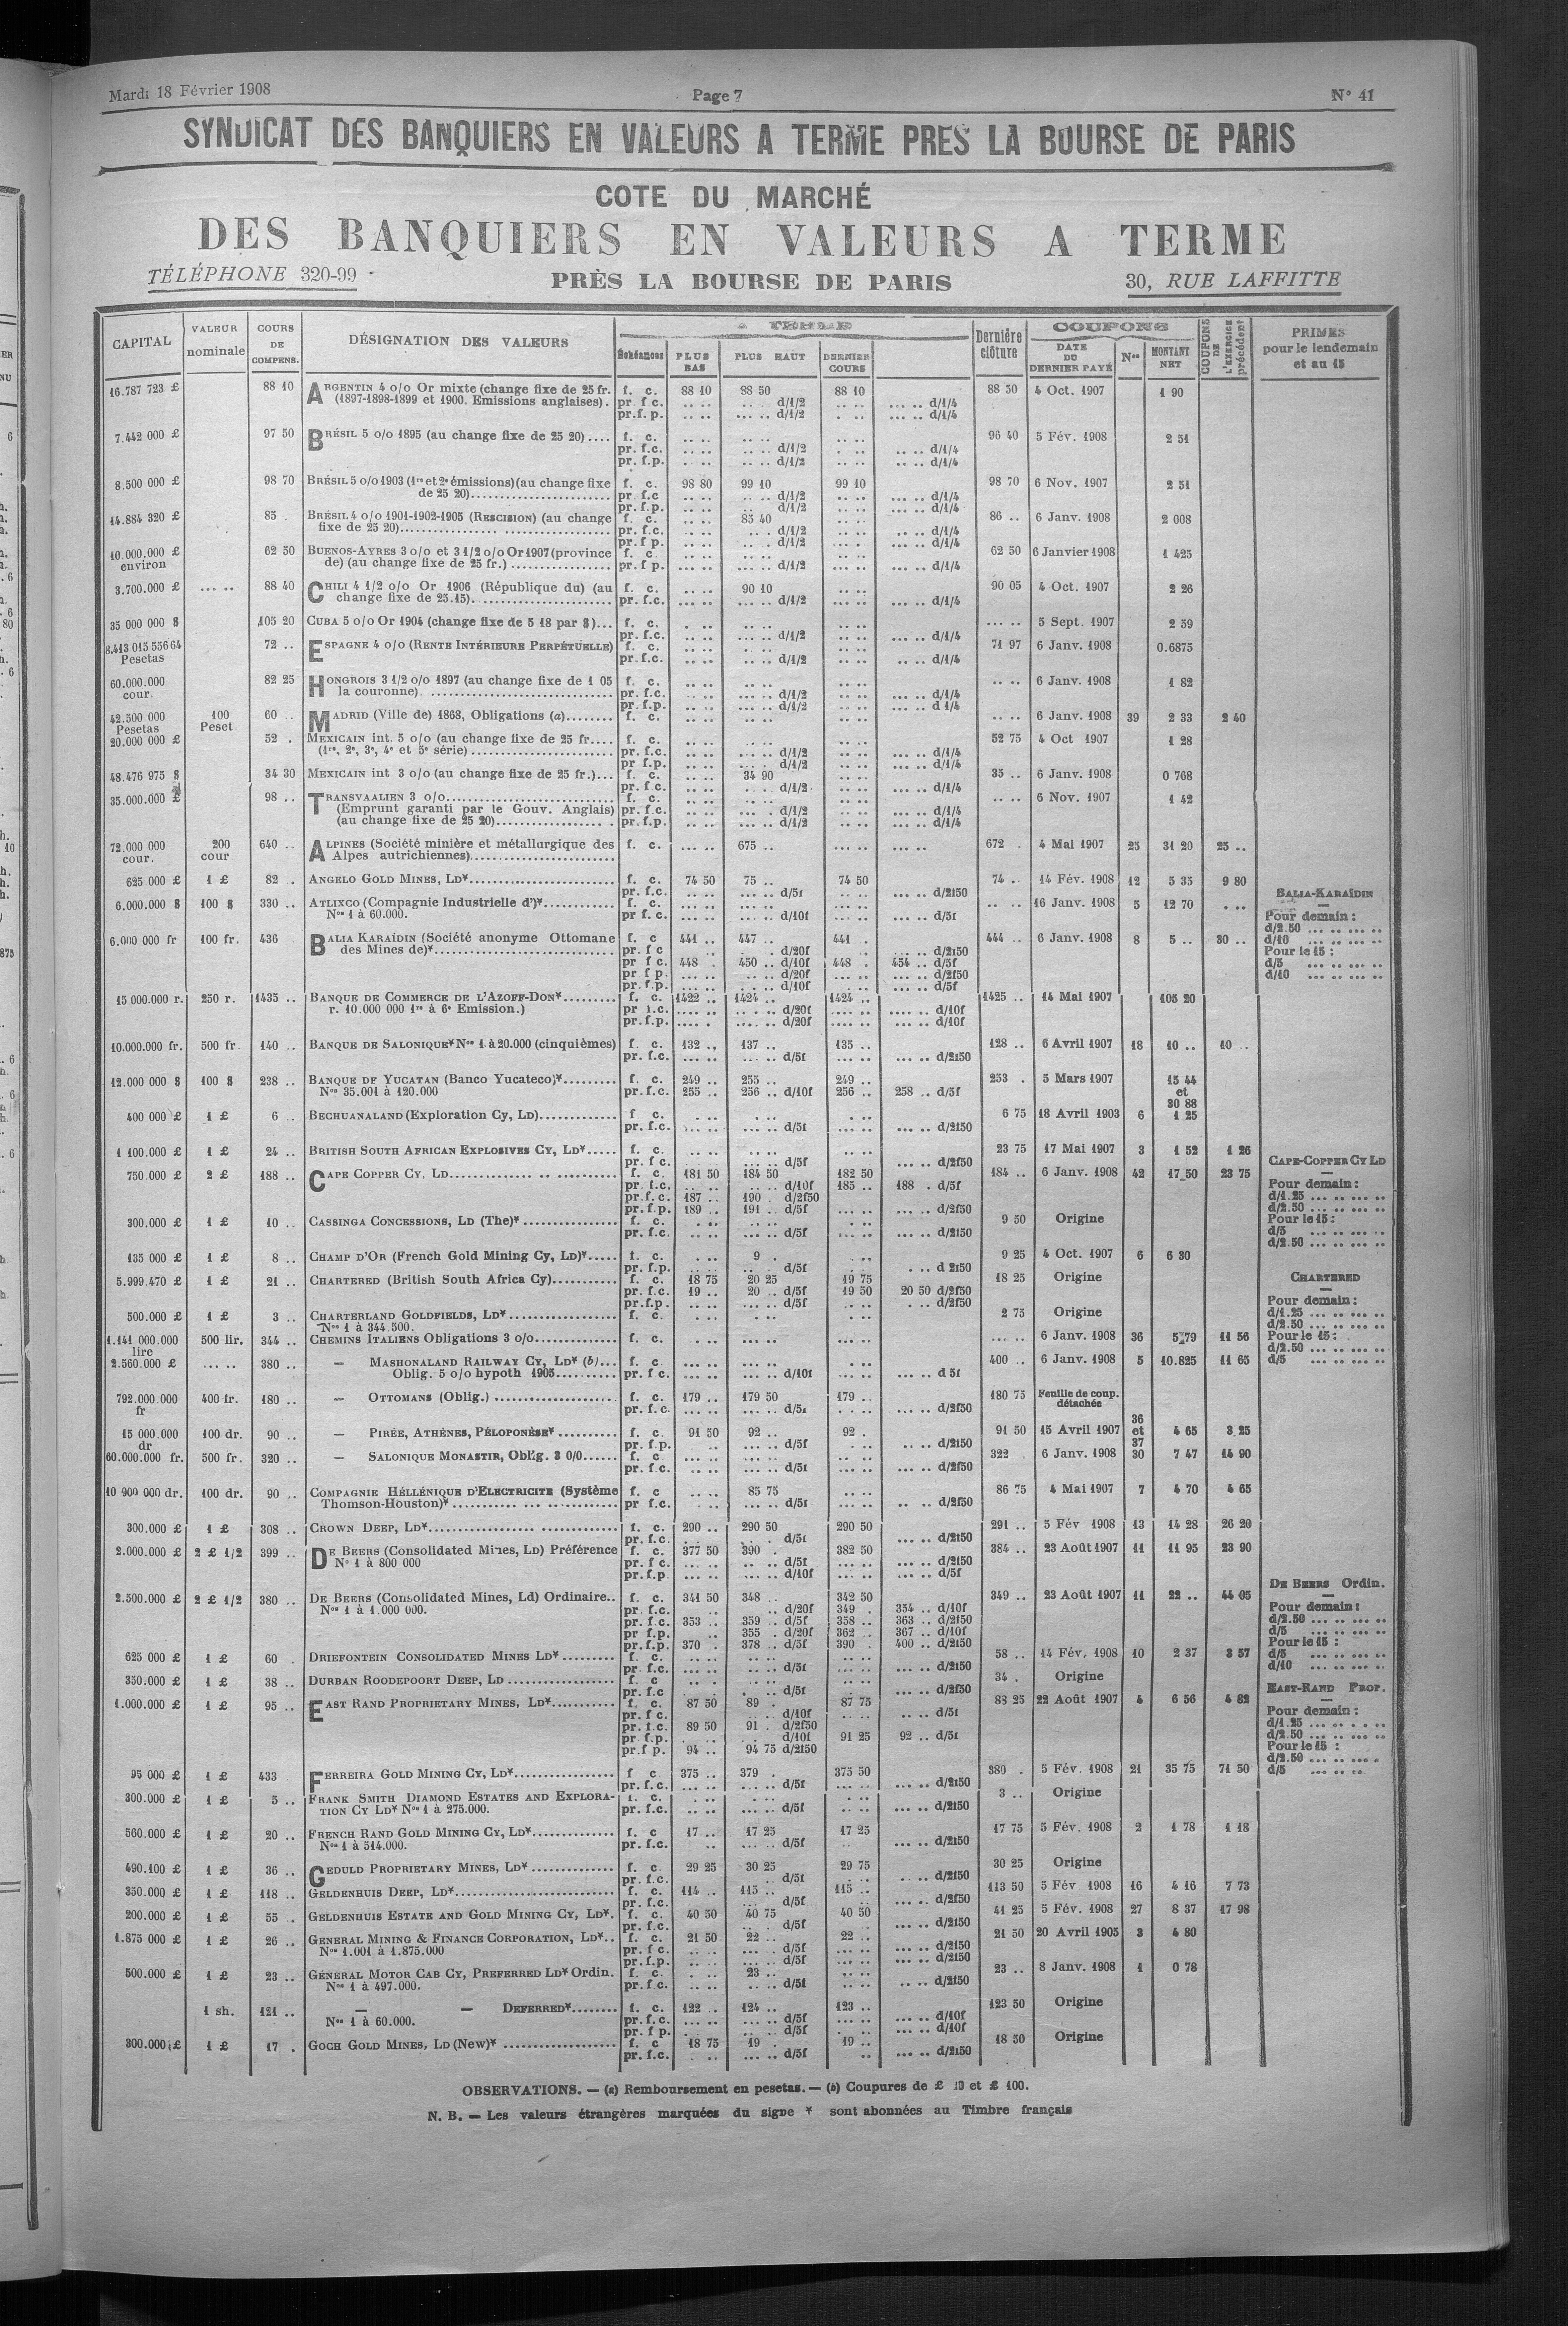 Mardi 18 Février 1908 Page 7 N° 41
SYNDICAT DES BANQUIERS EN VALEURS A TERME PRES LA BOURSE DE PARIS
COTE DU MARCHÉ
DES BANQUIERS EN VALEURS A TERME
TÉLÉPHONE 320-99 PRÈS LA BOURSE DE PARIS 30, RUE LAFFITTE
CAPITAL VALEUR nominale COURS DE COMPENS. DÉSIGNATION DES VALEURS Échéances PLUS BAS PLUS HAUT DERNIER COURS Dernière clôture COUPONS DATE DU DERNIER PAYÉ Nos MONTANT NET COUPONS DE L'EXERCICE précédent PRIMES pour le lendemain et au 15
16.787 723 £ 88 10 ARGENTIN 4 o/o Or mixte (change fixe de 25 fr. f. c. 88 10 88 50 88 10 88 50 4 Oct. 1907 1 90
(1897-1898-1899 et 1900. Emissions anglaises). pr f c. .. .. .. . d/1/2 .. .. ... .. d/1/4
pr.f.p. .. .. ... .. d/1/2 . .. ... .. d/1/4
7.442 000 £ 97 50 BRÉSIL 5 o/o 1895 (au change fixe de 25 20).... f. c. 96 40 5 Fév. 1908 2 51
pr. f.c. d/1/2 d/1/4
pr. f.p. d/1/2 d/1/4
8.500 000 £ 98 70 BRÉSIL 5 o/o 1903 (1re et 2e émissions) (au change fixe f. c. 98 80 99 10 99 10 98 70 6 Nov. 1907 2 51
de 25 20)........ pr f.c d/1/2 d/1/4
pr. f.p. d/1/2 d/1/4
14.884 320 £ 85 . BRÉSIL 4 o/o 1901-1902-1905 (RESCISION) (au change f. c. 85 40 86 .. 6 Janv. 1908 2 008
fixe de 25 20)........ pr. f.c. d/1/2 d/1/4
pr. f p. d/1/2 d/1/4
10.000.000 £ 62 50 BUENOS-AYRES 3 o/o et 3 1/2 o/o Or 1907 (province f. c 62 50 6 Janvier 1908 1 425
environ de) (au change fixe de 25 fr.) ........ pr. f p. d/1/2 d/1/4
3.700.000 £ ... .. 88 40 CHILI 4 1/2 o/o Or 1906 (République du) (au f. c. 90 10 90 05 4 Oct. 1907 2 26
change fixe de 25.15)......... pr. f.c. d/1/2 d/1/4
35 000 000 $ 105 20 CUBA 5 o/o Or 1904 (change fixe de 5 18 par $)... f. c. 5 Sept. 1907 2 59
pr. f.c. d/1/2 d/1/4
8.413 015 556 64 72 .. ESPAGNE 4 o/o (RENTE INTÉRIEURE PERPÉTUELLE) f. c. 71 97 6 Janv. 1908 0.6875
Pesetas pr. f.c. d/1/2 d/1/4
60.000.000 82 25 HONGROIS 3 1/2 o/o 1897 (au change fixe de 1 05 f. c. 6 Janv. 1908 1 82
cour. la couronne) ........ pr. f.c. d/1/2 d/1/4
pr. f.p. d/1/2 d 1/4
42.500 000 100 60 .. MADRID (Ville de) 1868, Obligations (a)........ f. c. 6 Janv. 1908 39 2 33 2 40
Pesetas Peset.
20.000 000 £ 52 . MEXICAIN int. 5 o/o (au change fixe de 25 fr.... f. c. 52 75 4 Oct 1907 1 28
(1re, 2e, 3e, 4e et 5e série) ........ pr. f.c. d/1/2 d/1/4
pr f.p. d/1/2 d/1/4
48.476 975 $ 34 30 MEXICAIN int 3 o/o (au change fixe de 25 fr.)... f. c. 34 90 35 .. 6 Janv. 1908 0 768
pr. f c. d/1/2 d/1/4
35.000.000 £ 98 .. TRANSVAALIEN 3 o/o........ f. c. 6 Nov. 1907 1 42
(Emprunt garanti par le Gouv. Anglais) pr. f.c. d/1/2 d/1/4
(au change fixe de 25 20)........ pr. f.p. d/1/2 d/1/4
72.000 000 200 640 .. ALPINES (Société minière et métallurgique des f. c. 675 .. 672 . 4 Mai 1907 25 31 20 25 ..
cour. cour Alpes autrichiennes)........
625 000 £ 1 £ 82 . ANGELO GOLD MINES, LD*........ f. c. 74 50 75 .. 74 50 74 .. 14 Fév. 1908 12 5 35 9 80
pr. f.c. d/5f d/2f50 BALIA-KARAÏDIN
6.000.000 $ 100 $ 330 .. ATLIXCO (Compagnie Industrielle d')*........ f. c. 16 Janv. 1908 5 12 70
Nos 1 à 60.000. pr f. c. d/10f d/5f Pour demain :
d/2.50 ... .. ... ..
6.000 000 fr 100 fr. 436 BALIA KARAÏDIN (Société anonyme Ottomane f. c 441 .. 447 .. 441 . 444 .. 6 Janv. 1908 8 5 .. 30 .. d/10 ... .. ... ..
des Mines de)*........ pr f c d/20f d/2f50 Pour le 15 :
pr f c. 448 . 450 .. d/10f 448 . 454 .. d/5f d/5 ... .. ... ..
pr f p. d/20f d/2f50 d/10 ... .. ... ..
pr. f.p. d/10f d/5f
15.000.000 r. 250 r. 1435 .. BANQUE DE COMMERCE DE L'AZOFF-DON*........ f. c. 1422 .. 1424 .. 1424 .. 1425 .. 14 Mai 1907 105 20
r. 10.000 000 1re à 6e Emission.) pr f.c. d/20f d/10f
pr. f.p. d/20f d/10f
10.000.000 fr. 500 fr. 140 .. BANQUE DE SALONIQUE* Nos 1 à 20.000 (cinquièmes) f. c. 132 .. 137 .. 135 .. 128 .. 6 Avril 1907 18 10 .. 10 ..
pr. f.c. d/5f d/2f50
12.000 000 $ 100 $ 238 .. BANQUE DE YUCATAN (Banco Yucateco)*........ f. c. 249 .. 255 .. 249 .. 253 . 5 Mars 1907 15 44
Nos 35.001 à 120.000 pr. f.c. 255 .. 256 .. d/10f 256 .. 258 .. d/5f et
30 88
400 000 £ 1 £ 6 .. BECHUANALAND (Exploration Cy, LD)........ f c. 6 75 18 Avril 1903 6 1 25
pr. f.c. d/5f d/2f50
1 100.000 £ 1 £ 24 .. BRITISH SOUTH AFRICAN EXPLOSIVES CY, LD*..... f. c. 23 75 17 Mai 1907 3 1 52 1 26
pr. f c. d/5f d/2f50 CAPE-COPPER CY LD
750.000 £ 2 £ 188 .. CAPE COPPER CY. LD........ f. c. 181 50 184 50 182 50 184 .. 6 Janv. 1908 42 17 50 23 75
pr. f.c. d/10f 185 .. 188 . d/5f Pour demain :
pr. f. c. 187 .. 190 . d/2f50 d/1.25 ... .. ... ..
pr. f.p. 189 .. 191 . d/5f d/2f50 d/2.50 ... .. ... ..
300.000 £ 1 £ 10 .. CASSINGA CONCESSIONS, LD (The)* ........ f. c. 9 50 Origine Pour le 15 :
pr. f.c. d/5f d/2f50 d/5 ... .. ... ..
d/2.50 ... .. ... ..
135 000 £ 1 £ 8 .. CHAMP D'OR (French Gold Mining Cy, LD)*..... f. c. 9 . 9 25 4 Oct. 1907 6 6 30
pr. f.p. d/5f d 2f50
5.999.470 £ 1 £ 21 .. CHARTERED (British South Africa Cy)........ f. c. 18 75 20 25 19 75 18 25 Origine CHARTERED
pr. f.c. 19 .. 20 .. d/5f 19 50 20 50 d/2f50
pr.f.p. d/5f d/2f50 Pour demain :
500.000 £ 1 £ 3 .. CHARTERLAND GOLDFIELDS, LD* ........ f. c. 2 75 Origine d/1.25 ... .. ... ..
Nos 1 à 344.500. d/2.50 ... .. ... ..
1.141 000.000 500 lir. 344 .. CHEMINS ITALIENS Obligations 3 o/o........ f. c. 6 Janv. 1908 36 5 79 11 56 Pour le 15 :
lire d/2.50 ... .. ... ..
2.560.000 £ ... .. 380 .. — MASHONALAND RAILWAY CY, LD* (b)... f. c 400 .. 6 Janv. 1908 5 10.825 11 65 d/5 ... .. ... ..
Oblig. 5 o/o hypoth 1905........ pr. f c. d/10f d 5f
792.000.000 400 fr. 180 .. — OTTOMANS (Oblig.) ........ f. c. 179 .. 179 50 179 .. 180 75 Feuille de coup.
fr pr. f.c. d/5f d/2f50 détachée
15 000.000 100 dr. 90 .. — PIRÉE, ATHÈNES, PÉLOPONÈSE* ........ f. c. 91 50 92 .. 92 . 91 50 15 Avril 1907 36 et 37 4 65 3 25
dr pr. f.p. d/5f d/2f50
60.000.000 fr. 500 fr. 320 .. — SALONIQUE MONASTIR, Oblig. 3 0/0...... f. c 322 6 Janv. 1908 30 7 47 14 90
pr. f.c. d/5f d/2f50
10 900 000 dr. 100 dr. 90 .. COMPAGNIE HÉLLÉNIQUE D'ELECTRICITE (Système f. c 85 75 86 75 4 Mai 1907 7 4 70 4 65
Thomson-Houston)* ........ pr f.c. d/5f d/2f50
300.000 £ 1 £ 308 .. CROWN DEEP, LD*........ f. c. 290 .. 290 50 290 50 291 .. 5 Fév 1908 13 14 28 26 20
pr. f.c. d/5f d/2f50
2.000.000 £ 2 £ 1/2 399 .. DE BEERS (Consolidated Mines, LD) Préférence f. c. 377 50 390 . 382 50 384 .. 23 Août 1907 11 11 95 23 90
No 1 à 800 000 pr. f c. d/5f d/2f50
pr. f.p. d/10f d/5f
DE BEERS Ordin.
2.500.000 £ 2 £ 1/2 380 .. DE BEERS (Consolidated Mines, Ld) Ordinaire.. f. c. 341 50 348 .. 342 50 349 .. 23 Août 1907 11 22 .. 44 05
Nos 1 à 1.000 000. pr. f.c. d/20f 349 . 354 .. d/10f Pour demain :
pr. f.c. 353 .. 359 .. d/5f 358 .. 363 .. d/2f50 d/2.50 ... .. ... ..
pr f.p. .. 355 .. d/20f 362 .. 367 .. d/10f d/5 ... .. ... ..
pr. f.p. 370 . 378 .. d/5f 390 . 400 .. d/2f50 Pour le 15 :
625 000 £ 1 £ 60 . DRIEFONTEIN CONSOLIDATED MINES LD*........ f. c. 58 .. 14 Fév. 1908 10 2 37 3 57 d/5 ... .. ... ..
pr. f.c. d/5f d/2f50 d/10 ... .. ... ..
350.000 £ 1 £ 38 .. DURBAN ROODEPOORT DEEP, LD ........ f. c 34 . Origine
pr. f.c d/5f d/2f50 EAST-RAND PROP.
1.000.000 £ 1 £ 95 .. EAST RAND PROPRIETARY MINES, LD*........ f. c. 87 50 89 . 87 75 88 25 22 Août 1907 4 6 56 4 82
pr. f c. d/10f d/5f Pour demain :
pr. f.c. 89 50 91 . d/2f50 d/1.25 ... .. ... ..
pr f.p. d/10f 91 25 92 .. d/5f d/2.50 ... .. ... ..
pr.f p. 94 .. 94 75 d/2f50 Pour le 15 :
d/2.50 ... .. ... .
95 000 £ 1 £ 433 FERREIRA GOLD MINING CY, LD*........ f c. 375 .. 379 . 375 50 380 . 5 Fév. 1908 21 35 75 71 50 d/5 ... .. ..
pr. f.c. d/5f d/2f50
300.000 £ 1 £ 5 .. FRANK SMITH DIAMOND ESTATES AND EXPLORA- f. c. 3 .. Origine
TION CY LD* Nos 1 à 275.000. pr. f.c. d/5f d/2f50
560.000 £ 1 £ 20 .. FRENCH RAND GOLD MINING CY, LD*........ f. c 17 .. 17 25 17 25 17 75 5 Fév. 1908 2 1 78 1 18
Nos 1 à 514.000. pr. f.c. d/5f d/2f50
490.100 £ 1 £ 36 .. GEDULD PROPRIETARY MINES, LD* ........ f. c. 29 25 30 25 29 75 30 25 Origine
pr. f.c. d/5f d/2f50
350.000 £ 1 £ 118 .. GELDENHUIS DEEP, LD*........ f. c. 114 .. 115 .. 115 .. 113 50 5 Fév 1908 16 4 16 7 73
pr. f.c. d/5f d/2f50
200.000 £ 1 £ 55 . GELDENHUIS ESTATE AND GOLD MINING CY, LD*. f. c. 40 50 40 75 40 50 41 25 5 Fév. 1908 27 8 37 17 98
pr. f.c. d/5f d/2f50
1.875 000 £ 1 £ 26 .. GENERAL MINING & FINANCE CORPORATION, LD*.. f. c. 21 50 22 .. 22 .. 21 50 20 Avril 1905 3 4 80
Nos 1.001 à 1.875.000 pr f c. d/5f d/2f50
pr. f.p. d/5f d/2f50
500.000 £ 1 £ 23 .. GÉNÉRAL MOTOR CAB CY, PREFERRED LD* Ordin. f. c. 23 .. 23 .. 8 Janv. 1908 1 0 78
Nos 1 à 497.000. pr. f c. d/5f d/2f50
1 sh. 121 .. — — DEFERRED*........ f. c. 122 .. 124 .. 123 .. 123 50 Origine
Nos 1 à 60.000. pr. f.c. d/5f d/10f
pr. f p. d/5f d/10f
300.000 £ 1 £ 17 . GOCH GOLD MINES, LD (New)* ........ f. c 18 75 19 . 19 .. 18 50 Origine
pr. f.c. d/5f d/2f50
OBSERVATIONS. — (a) Remboursement en pesetas. — (b) Coupures de £ 10 et £ 100.
N. B. — Les valeurs étrangères marquées du signe * sont abonnées au Timbre français